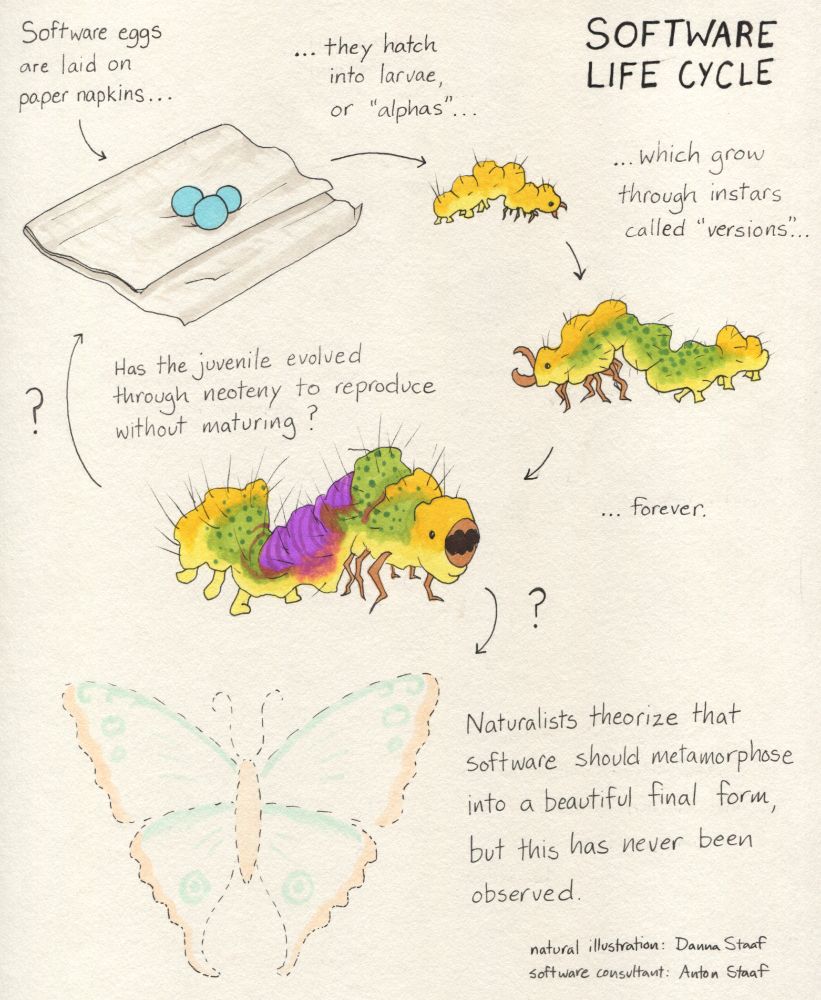 SOFTWARE
LIFE CYCLE
Software eggs
are laid on
paper napkins...
... they hatch
into larvae,
or "alphas"...
...which grow
through instars
called "versions"...
... forever.
Has the juvenile evolved
through neoteny to reproduce
without maturing?
?
?
Naturalists theorize that
software should metamorphose
into a beautiful final form,
but this has never been
observed.
natural illustration: Danna Staaf
software consultant: Anton Staaf